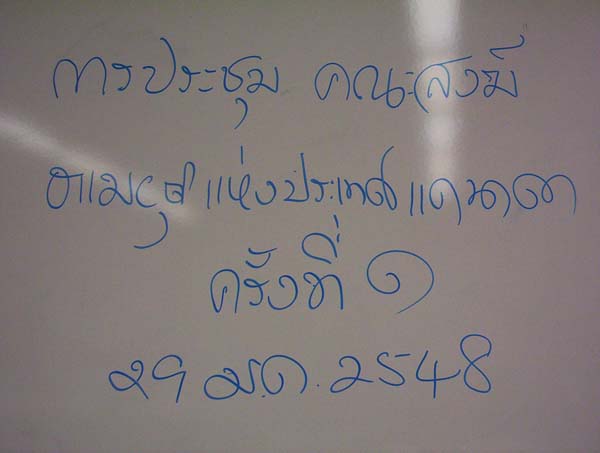 การประชุม คณะสงฆ์
ธรรมยุต แห่งประเทศแคนาดา
ครั้งที่ ๑
29 ม.ค. 2548